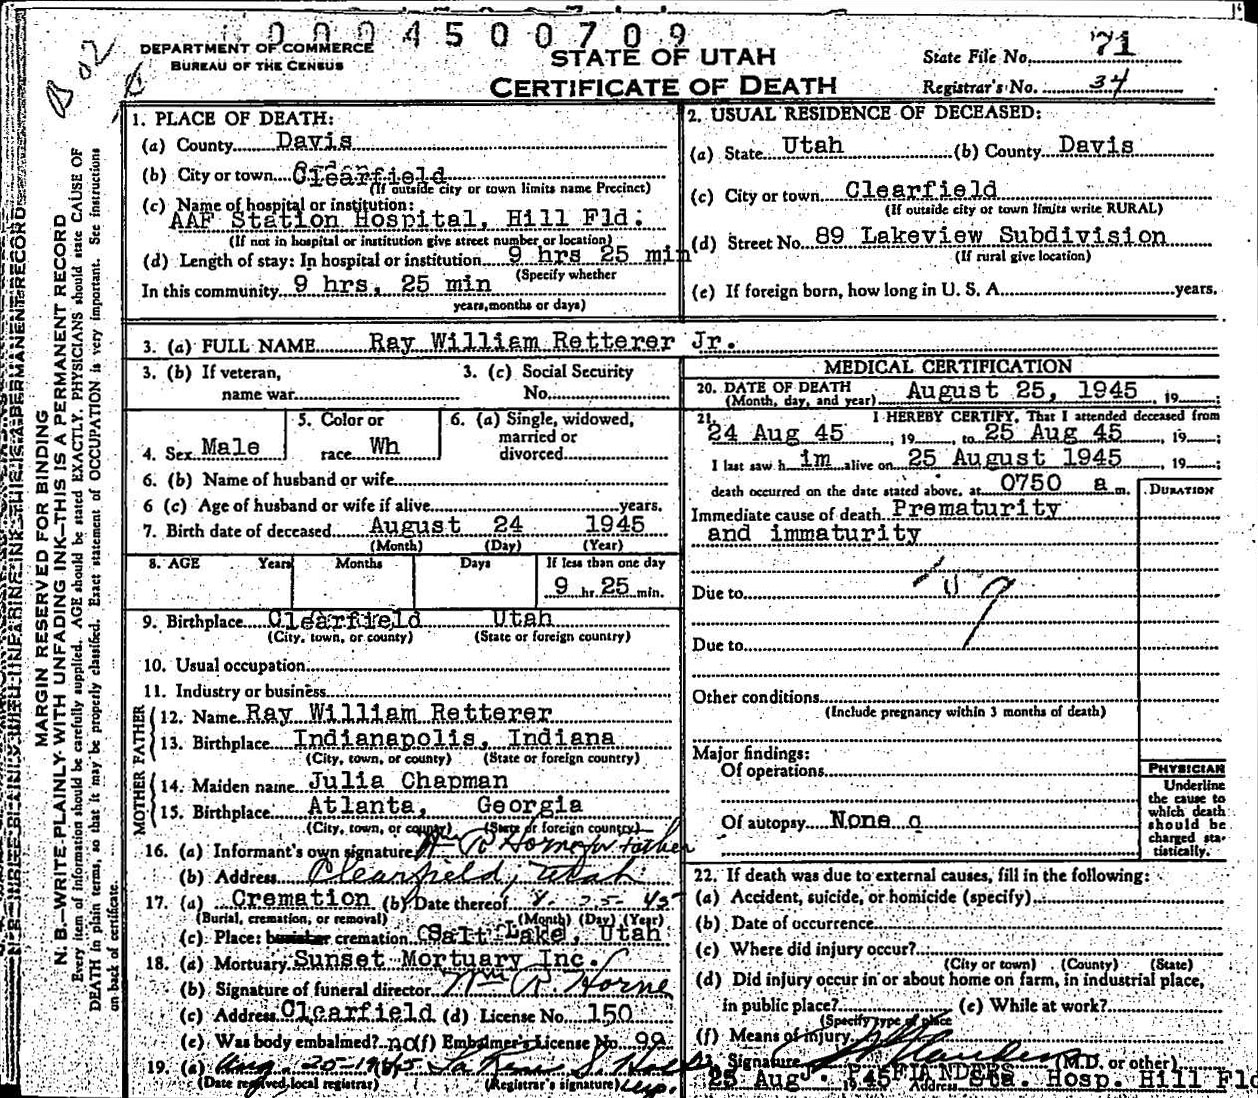 0004500709
DEPARTMENT OF COMMERCE
BUREAU OF THE CENSUS
STATE OF UTAH
CERTIFICATE OF DEATH
State File No. 71
Registrar's No. 34
MARGIN RESERVED FOR BINDING
N. B.—WRITE PLAINLY WITH UNFADING INK—THIS IS A PERMANENT RECORD
Every item of information should be carefully supplied. AGE should be stated EXACTLY. PHYSICIANS should state CAUSE OF
DEATH in plain terms, so that it may be properly classified. Exact statement of OCCUPATION is very important. See instructions
on back of certificate.
1. PLACE OF DEATH:
(a) County Davis
(b) City or town Clearfield
(If outside city or town limits name Precinct)
(c) Name of hospital or institution:
AAF Station Hospital, Hill Fld.
(If not in hospital or institution give street number or location)
(d) Length of stay: In hospital or institution 9 hrs 25 min
(Specify whether
In this community 9 hrs, 25 min
years, months or days)
2. USUAL RESIDENCE OF DECEASED:
(a) State Utah (b) County Davis
(c) City or town Clearfield
(If outside city or town limits write RURAL)
(d) Street No. 89 Lakeview Subdivision
(If rural give location)
(e) If foreign born, how long in U. S. A. years.
3. (a) FULL NAME Ray William Retterer Jr.
3. (b) If veteran, name war
3. (c) Social Security No.
4. Sex Male
5. Color or race Wh
6. (a) Single, widowed, married or divorced
6. (b) Name of husband or wife
6 (c) Age of husband or wife if alive years.
7. Birth date of deceased August 24 1945
(Month) (Day) (Year)
8. AGE Years Months Days If less than one day
9 hr. 25 min.
9. Birthplace Clearfield Utah
(City, town, or county) (State or foreign country)
10. Usual occupation
11. Industry or business
FATHER
12. Name Ray William Retterer
13. Birthplace Indianapolis, Indiana
(City, town, or county) (State or foreign country)
MOTHER
14. Maiden name Julia Chapman
15. Birthplace Atlanta, Georgia
(City, town, or county) (State or foreign country)
16. (a) Informant's own signature Wm R Horne for Father
(b) Address Clearfield, Utah
17. (a) Cremation (b) Date thereof 8-25-45
(Burial, cremation, or removal) (Month) (Day) (Year)
(c) Place: cremation Salt Lake, Utah
18. (a) Mortuary Sunset Mortuary Inc.
(b) Signature of funeral director Wm R. Horne
(c) Address Clearfield (d) License No. 150
(e) Was body embalmed? no (f) Embalmer's License No. 99
19. (a) Aug. 25-1945
(Date received local registrar) (Registrar's signature)
MEDICAL CERTIFICATION
20. DATE OF DEATH August 25, 1945, 19 ;
(Month, day, and year)
21. I HEREBY CERTIFY, That I attended deceased from
24 Aug 45, 19 , to 25 Aug 45, 19 ;
I last saw h im alive on 25 August 1945, 19 ;
death occurred on the date stated above, at 0750 a m.
DURATION
Immediate cause of death Prematurity
and immaturity
Due to
Due to
Other conditions
(Include pregnancy within 3 months of death)
Major findings:
Of operations
Of autopsy None
PHYSICIAN
Underline
the cause to
which death
should be
charged sta-
tistically.
22. If death was due to external causes, fill in the following:
(a) Accident, suicide, or homicide (specify)
(b) Date of occurrence
(c) Where did injury occur?
(City or town) (County) (State)
(d) Did injury occur in or about home on farm, in industrial place,
in public place? (e) While at work?
(Specify type of place
(f) Means of injury
23. Signature (M.D. or other)
25 Aug 1945 J. P. FLANDERS Address Sta. Hosp. Hill Fld